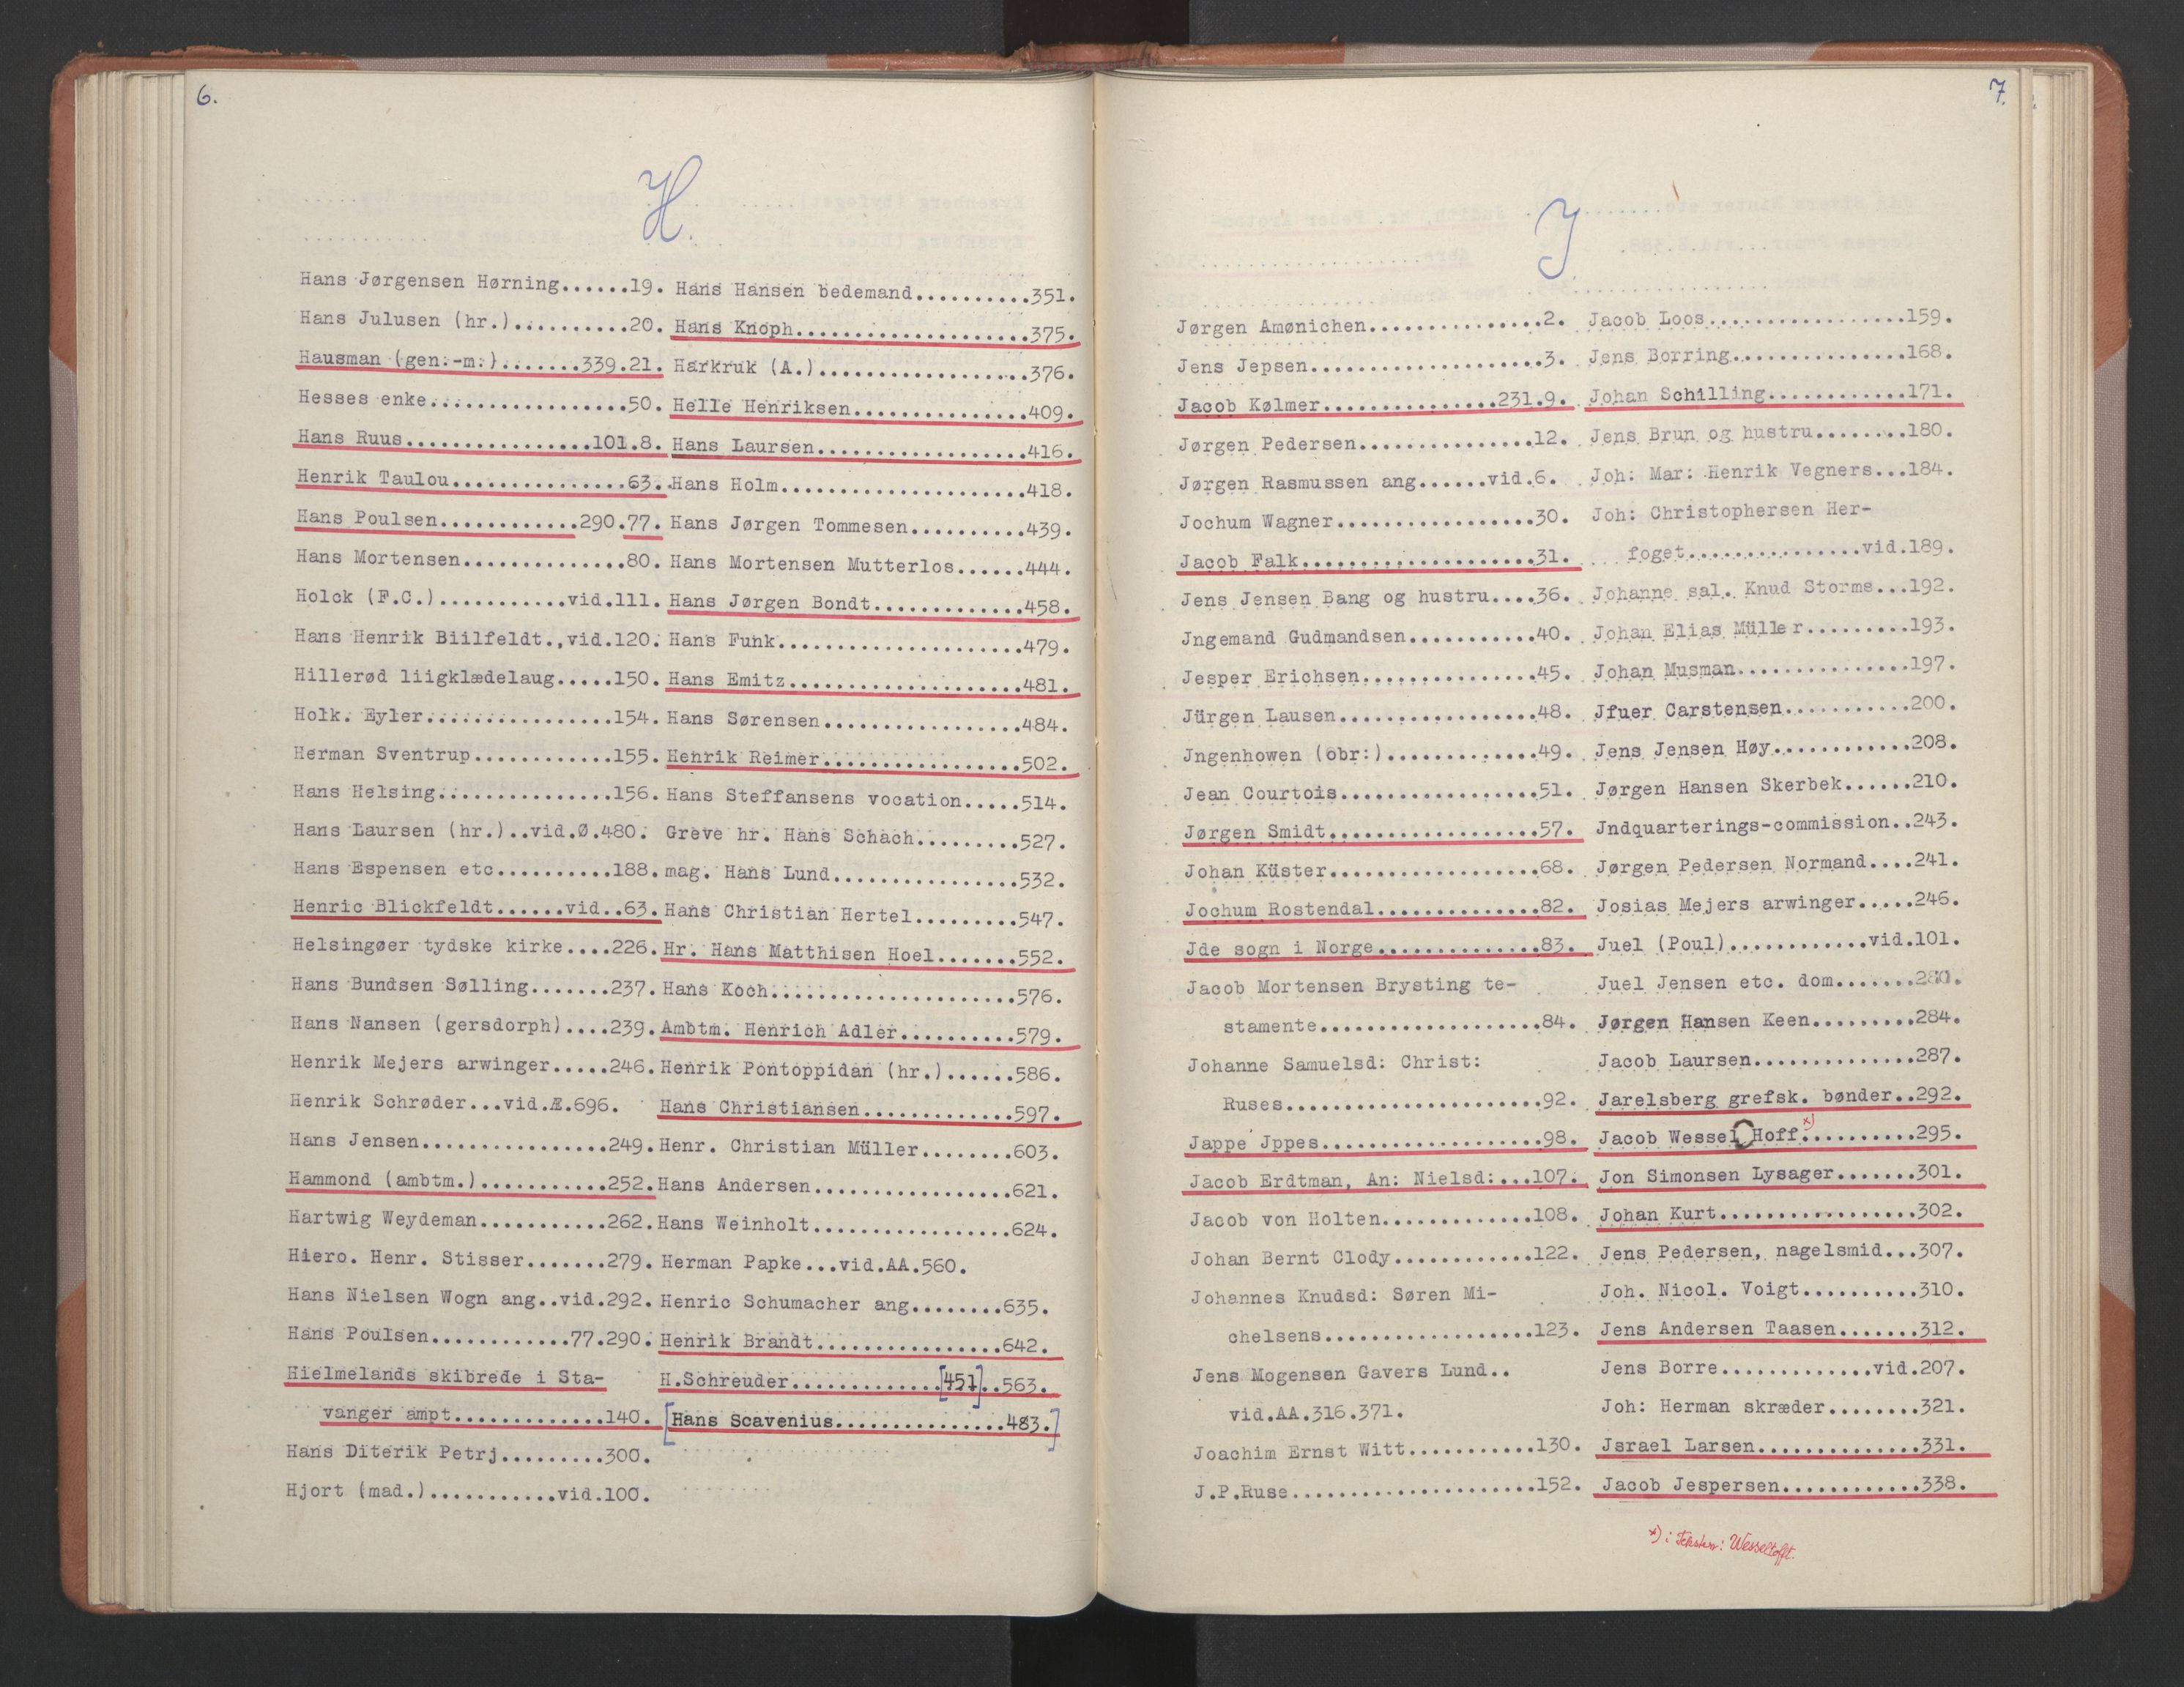 6.
H.
Hans Jørgensen Hørning......19.
Hans Julusen (hr.)..........20.
Hausman (gen:-m:).......339.21.
Hesses enke.................50.
Hans Ruus................101.8.
Henrik Taulou...............63.
Hans Poulsen............290.77.
Hans Mortensen..............80.
Holck (F.C.)...........vid.111.
Hans Henrik Biilfeldt.,vid.120.
Hillerød liigklædelaug.....150.
Holk. Eyler................154.
Herman Sventrup............155.
Hans Helsing...............156.
Hans Laursen (hr.)..vid.Ø.480.
Hans Espensen etc..........188.
Henric Blickfeldt......vid..63.
Helsingøer tydske kirke....226.
Hans Bundsen Sølling.......237.
Hans Nansen (gersdorph)....239.
Henrik Mejers arwinger.....246.
Henrik Schrøder...vid.Æ.696.
Hans Jensen................249.
Hammond (ambtm.)...........252.
Hartwig Weydeman...........262.
Hiero. Henr. Stisser.......279.
Hans Nielsen Wogn ang..vid.292.
Hans Poulsen............77.290.
Hielmelands skibrede i Sta-
vanger ampt.............140.
Hans Diterik Petrj.........300.
Hjort (mad.)...........vid.100.
Hans Hansen bedemand..........351.
Hans Knoph....................375.
Harkruk (A.)..................376.
Helle Henriksen...............409.
Hans Laursen..................416.
Hans Holm.....................418.
Hans Jørgen Tommesen..........439.
Hans Mortensen Mutterlos......444.
Hans Jørgen Bondt.............458.
Hans Funk.....................479.
Hans Emitz....................481.
Hans Sørensen.................484.
Henrik Reimer.................502.
Hans Steffansens vocation.....514.
Greve hr. Hans Schach.........527.
mag. Hans Lund................532.
Hans Christian Hertel.........547.
Hr. Hans Matthisen Hoel.......552.
Hans Koch.....................576.
Ambtm. Henrich Adler..........579.
Henrik Pontoppidan (hr.)......586.
Hans Christiansen.............597.
Henr. Christian Müller........603.
Hans Andersen.................621.
Hans Weinholt.................624.
Herman Papke...vid.AA.560.
Henric Schumacher ang........635.
Henrik Brandt................642.
H.Schreuder.............[451]..563.
[Hans Scavenius...............483.]
7.
J.
Jørgen Amønichen...............2.
Jens Jepsen....................3.
Jacob Kølmer...............231.9.
Jørgen Pedersen...............12.
Jørgen Rasmussen ang......vid.6.
Jochum Wagner.................30.
Jacob Falk....................31.
Jens Jensen Bang og hustru....36.
Jngemand Gudmandsen...........40.
Jesper Erichsen...............45.
Jürgen Lausen.................48.
Jngenhowen (obr:).............49.
Jean Courtois.................51.
Jørgen Smidt..................57.
Johan Küster..................68.
Jochum Rostendal..............82.
Jde sogn i Norge..............83.
Jacob Mortensen Brysting te-
stamente...................84.
Johanne Samuelsd: Christ:
Ruses......................92.
Jappe Jppes...................98.
Jacob Erdtman, An: Nielsd:...107.
Jacob von Holten.............108.
Johan Bernt Clody............122.
Johannes Knudsd: Søren Mi-
chelsens..................123.
Jens Mogensen Gavers Lund..
vid.AA.316.371.
Joachim Ernst Witt...........130.
J.P.Ruse.....................152.
Jacob Loos.................159.
Jens Borring...............168.
Johan Schilling............171.
Jens Brun og hustru........180.
Joh: Mar: Henrik Vegners...184.
Joh: Christophersen Her-
foget...............vid.189.
Johanne sal. Knud Storms...192.
Johan Elias Müller.........193.
Johan Musman...............197.
Jfuer Carstensen...........200.
Jens Jensen Høy............208.
Jørgen Hansen Skerbek......210.
Jndquarterings-commission..243.
Jørgen Pedersen Normand....241.
Josias Mejers arwinger.....246.
Juel (Poul)............vid.101.
Juel Jensen etc. dom.......280.
Jørgen Hansen Keen.........284.
Jacob Laursen..............287.
Jarelsberg grefsk. bønder..292.
Jacob Wessel Hoff x)..........295.
Jon Simonsen Lysager.......301.
Johan Kurt.................302.
Jens Pedersen, nagelsmid...307.
Joh. Nicol. Voigt..........310.
Jens Andersen Taasen.......312.
Jens Borre.............vid.207.
Joh: Herman skræder........321.
Jsrael Larsen..............331.
Jacob Jespersen............338.
x) i Teksten: Wesseltofft.